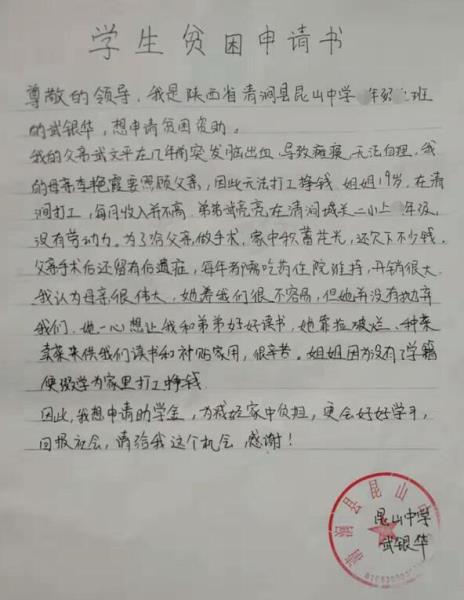 学生贫困申请书
尊敬的领导，我是陕西省清涧县昆山中学 年级 班
的武银华，想申请贫困资助。
我的父亲武文平在几年前突发脑出血，导致瘫痪，无法自理，我
的母亲李艳霞要照顾父亲，因此无法打工挣钱，姐姐19岁，在清
涧打工，每月收入并不高，弟弟武亮亮在清涧城关二小上 年级，
没有劳动力。为了给父亲做手术，家中积蓄花光，还欠下不少钱，
父亲手术后还留有后遗症，每年都需吃药住院维持，开销很大。
我认为母亲很伟大，她养我们很不容易，但她并没有抛弃
我们，她一心想让我和弟弟好好读书，她靠捡破烂、种菜
卖菜来供我们读书和补贴家用，很辛苦。姐姐因为没有了学籍
便辍学为家里打工挣钱。
因此，我想申请助学金，为减轻家中负担，更会好好学习，
回报社会，请给我这个机会，感谢！
昆山中学
武银华
清涧县昆山中